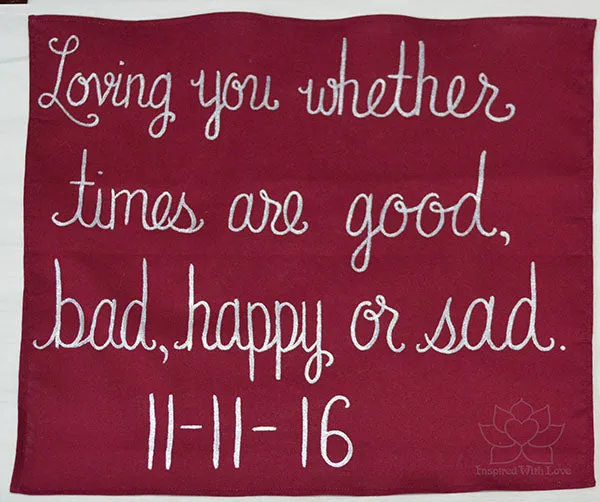 Loving you whether
times are good,
bad, happy or sad.
11-11-16
Inspired With Love